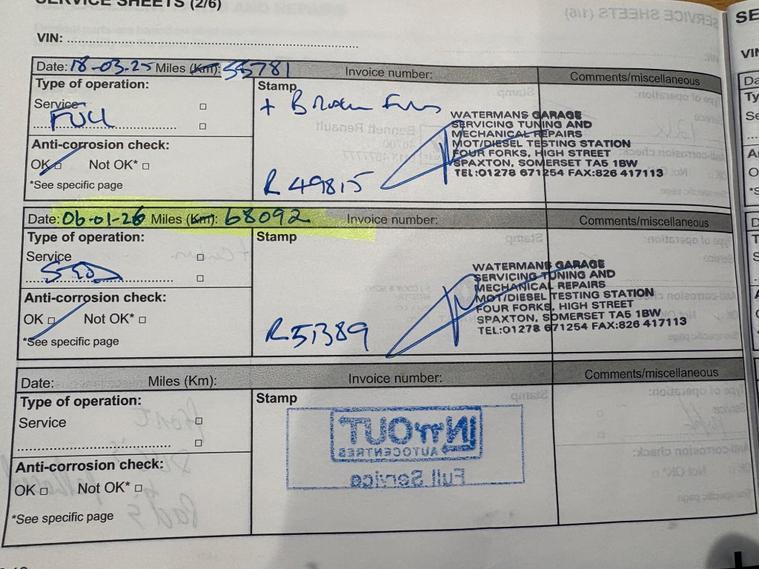 SERVICE SHEETS (2/6)
VIN:
Date: 18-03-25 Miles (Km): 55781 Invoice number: Comments/miscellaneous
Type of operation:
Service
FULL
Stamp
+
R49815
WATERMANS GARAGE
SERVICING TUNING AND
MECHANICAL REPAIRS
MOT/DIESEL TESTING STATION
FOUR FORKS, HIGH STREET
SPAXTON, SOMERSET TA5 1BW
TEL:01278 671254 FAX:826 417113
Anti-corrosion check:
OK Not OK*
*See specific page
Date: 06-01-26 Miles (Km): 68092 Invoice number: Comments/miscellaneous
Type of operation:
Service
Stamp
R51389
WATERMANS GARAGE
SERVICING TUNING AND
MECHANICAL REPAIRS
MOT/DIESEL TESTING STATION
FOUR FORKS, HIGH STREET
SPAXTON, SOMERSET TA5 1BW
TEL:01278 671254 FAX:826 417113
Anti-corrosion check:
OK Not OK*
*See specific page
Date: Miles (Km): Invoice number: Comments/miscellaneous
Type of operation:
Service
Stamp
IN'n'OUT
AUTOCENTRES
Full Service
Anti-corrosion check:
OK Not OK*
*See specific page